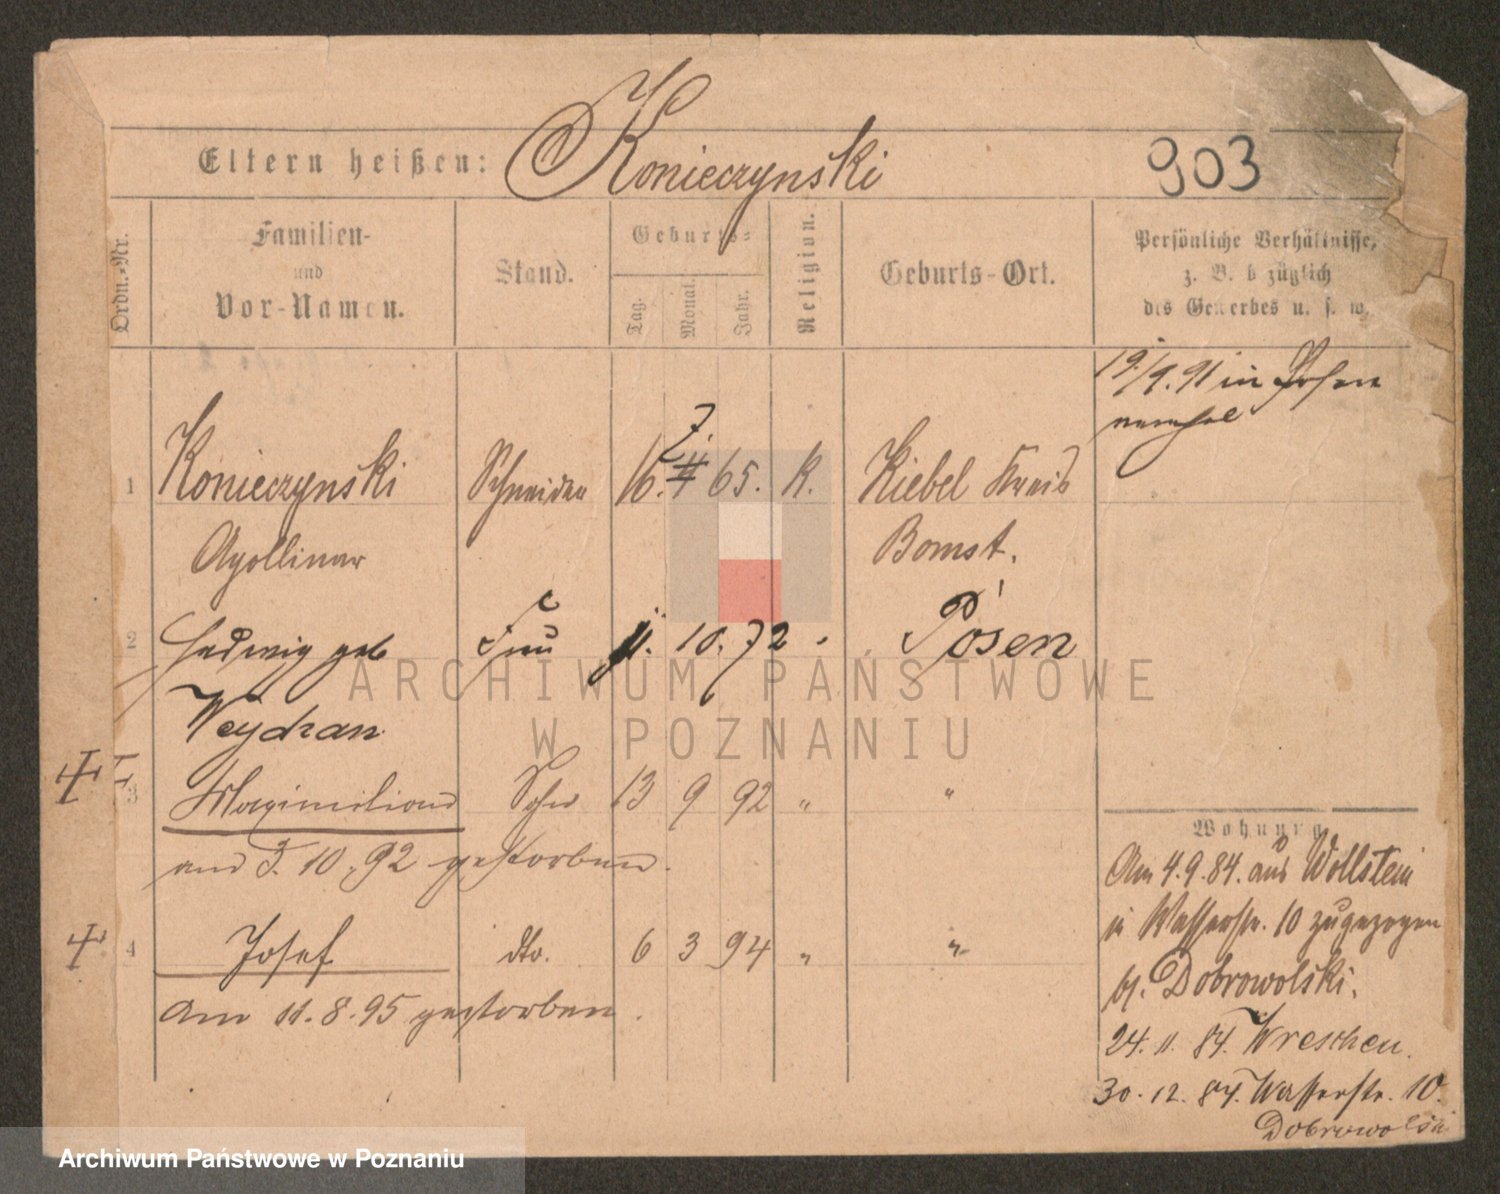 Eltern heißen: Konieczynski 903
Ordn.-Nr.
Familien-
und
Vor-Namen.
Stand.
Geburts-
Tag.
Monat.
Jahr.
Religion.
Geburts-Ort.
Persönliche Verhältnisse,
z. B. bezüglich
des Gewerbes u. s. w.
19./9.91 in Posen
1 Konieczynski Schneider 16. 7. 65. K. Kiebel Kreis
Apollinar Bomst.
2 Hedwig geb Frau 11. 10. 72 Posen
Weydran
3 Maximilian Sohn 13 9 92 " "
am 3. 10. 92 gestorben.
4 Josef dto. 6 3 94 " "
am 11. 8. 95 gestorben.
Wohnung
Am 4.9.84. aus Wollstein
in Wasserstr. 10 zugezogen
bj. Dobrowolski.
24. 11. 84. Wreschen.
30. 12. 84. Wasserstr. 10.
Dobrowolski
ARCHIWUM PAŃSTWOWE
W POZNANIU
Archiwum Państwowe w Poznaniu